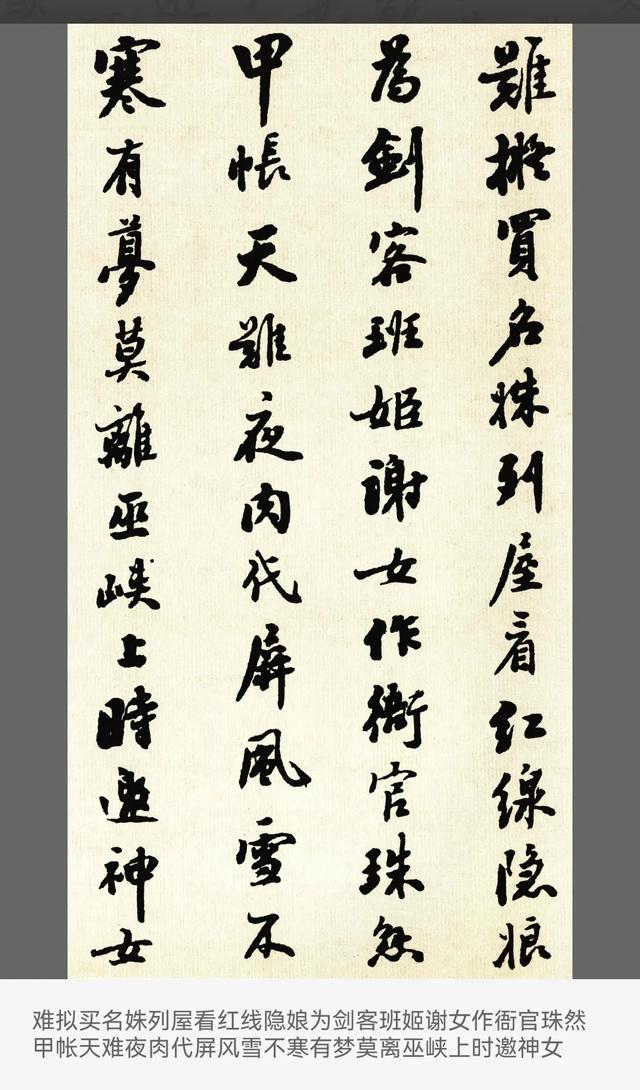 難擬買名姝列屋看紅線隐娘
為劍客班姬謝女作衙官珠然
甲帳天難夜肉代屏風雪不
寒有夢莫離巫峽上時邀神女
难拟买名姝列屋看红线隐娘为剑客班姬谢女作衙官珠然
甲帐天难夜肉代屏风雪不寒有梦莫离巫峡上时邀神女